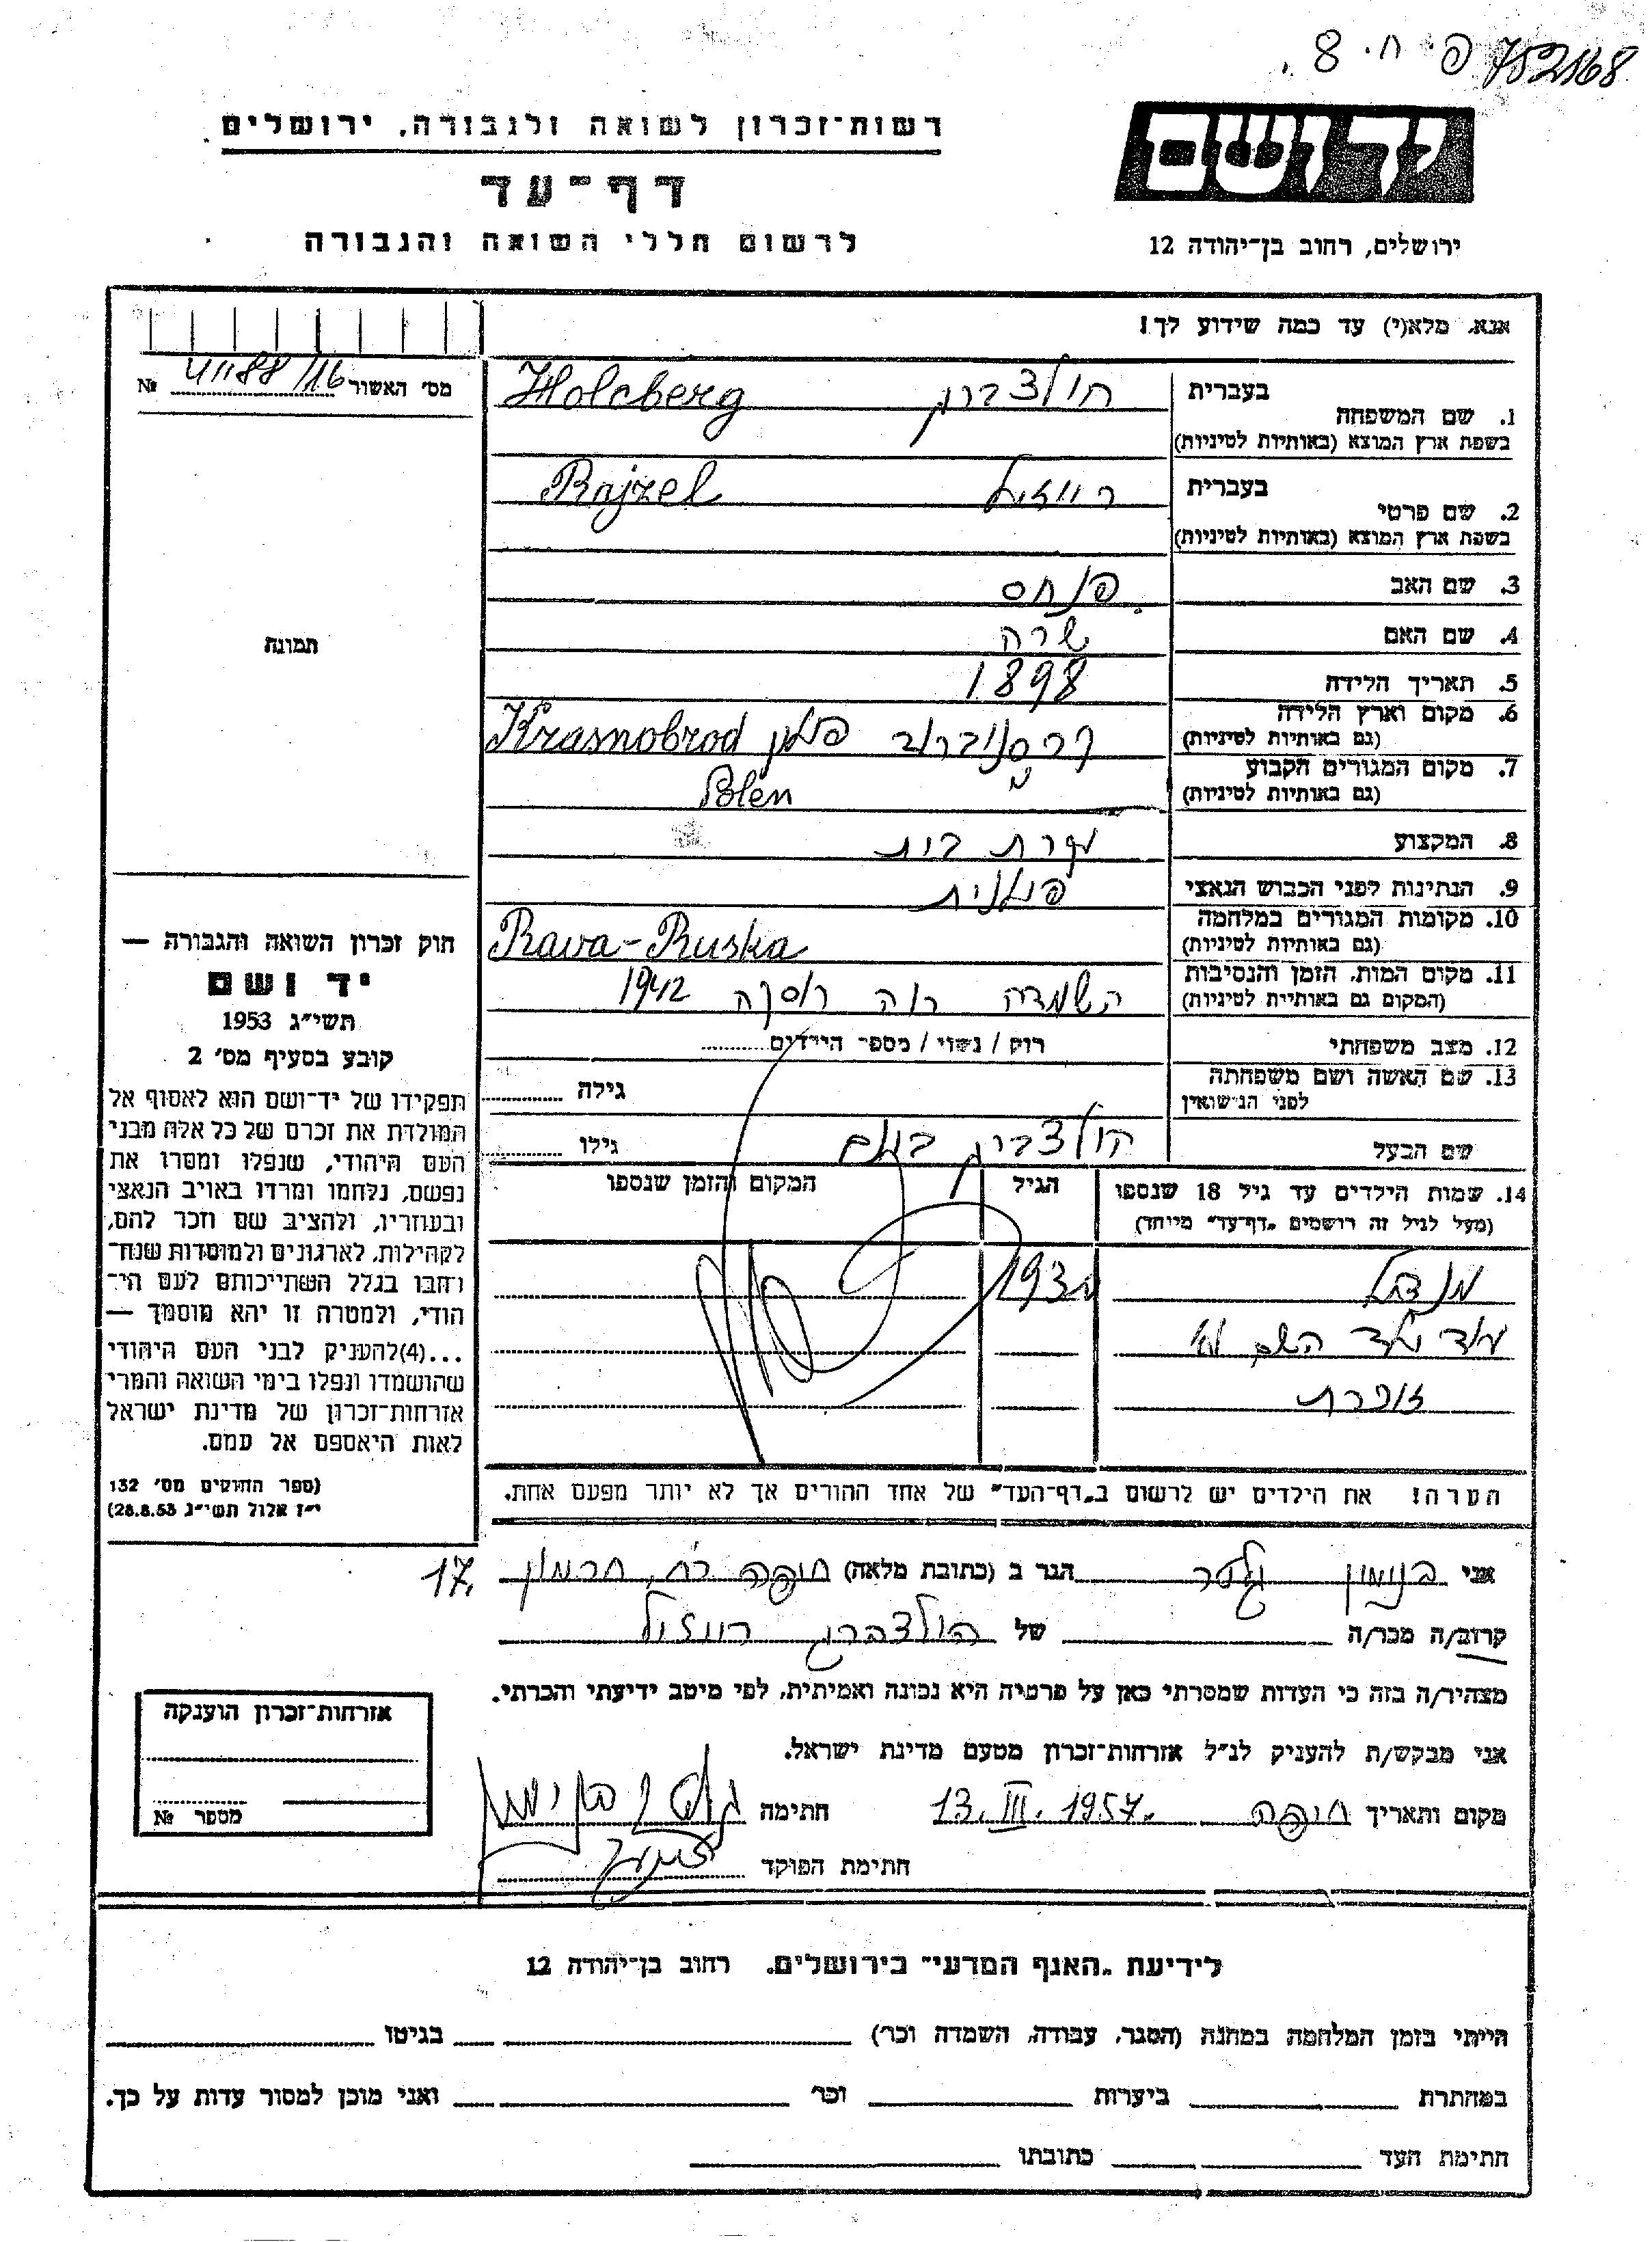 752168 פ. ח. 8.
יד ושם
רשות־זכרון לשואה ולגבורה, ירושלים
דף־עד
לרשום חללי השואה והגבורה
ירושלים, רחוב בן־יהודה 12
אנא, מלא(י) עד כמה שידוע לך!
מס׳ האשור №
בעברית הולצברג Holcberg
1. שם המשפחה
בשפת ארץ המוצא (באותיות לטיניות)
בעברית רייזיל Rajzel
2. שם פרטי
בשפת ארץ המוצא (באותיות לטיניות)
3. שם האב פנחס
4. שם האם שרה
5. תאריך הלידה 1898
6. מקום וארץ הלידה קרסניברוב פולין Krasnobrod
(גם באותיות לטיניות)
7. מקום המגורים הקבוע Polen
(גם באותיות לטיניות)
8. המקצוע עקרת בית
9. הנתינות לפני הכבוש הנאצי פולנית
10. מקומות המגורים במלחמה Rava-Ruska
(גם באותיות לטיניות)
11. מקום המות, הזמן והנסיבות השמדה רוה רוסקה 1942
(המקום גם באותיות לטיניות)
12. מצב משפחתי רוק / נשוי / מספר הילדים
13. שם האשה ושם משפחתה גילה
לפני הנישואין
שם הבעל הולצברג גילו
14. שמות הילדים עד גיל 18 שנספו הגיל המקום והזמן שנספו
(מעל לגיל זה רושמים „דף־עד" מיוחד)
מנדל
עוד ילד השם לא
זוכרת
הערה! את הילדים יש לרשום ב„דף־העד" של אחד ההורים אך לא יותר מפעם אחת.
תמונת
חוק זכרון השואה והגבורה —
יד ושם
תשי״ג 1953
קובע בסעיף מס׳ 2
תפקידו של יד־ושם הוא לאסוף אל
המולדת את זכרם של כל אלה מבני
העם היהודי, שנפלו ומסרו את
נפשם, נלחמו ומרדו באויב הנאצי
ובעוזריו, ולהציב שם וזכר להם,
לקהילות, לארגונים ולמוסדות שנח־
רחבו בגלל השתייכותם לעם הי־
הודי, ולמטרה זו יהא מוסמך —
...(4)להעניק לבני העם היהודי
שהושמדו ונפלו בימי השואה והמרי
אזרחות־זכרון של מדינת ישראל
לאות היאספם אל עמם.
(ספר החוקים מס׳ 132
י״ז אלול תשי״ג 28.8.53)
אני בנימין גלסר הגר ב (כתובת מלאה) חיפה רח, חרמון 17.
קרוב/ה מכר/ה של הולצברג רייזיל
מצהיר/ה בזה כי העדות שמסרתי כאן על פרטיה היא נכונה ואמיתית, לפי מיטב ידיעתי והכרתי.
אני מבקש/ת להעניק לנ״ל אזרחות־זכרון מטעם מדינת ישראל.
מקום ותאריך חיפה 13.III.1957. חתימה
חתימת הפוקד
אזרחות־זכרון הוענקה
מספר №
לידיעת „האגף המדעי" בירושלים. רחוב בן־יהודה 12
הייתי בזמן המלחמה במחנה (הסגר, עבודה, השמדה וכר׳) בגיטו
במחתרת ביערות וכר׳ ואני מוכן למסור עדות על כך.
חתימת העד כתובתו